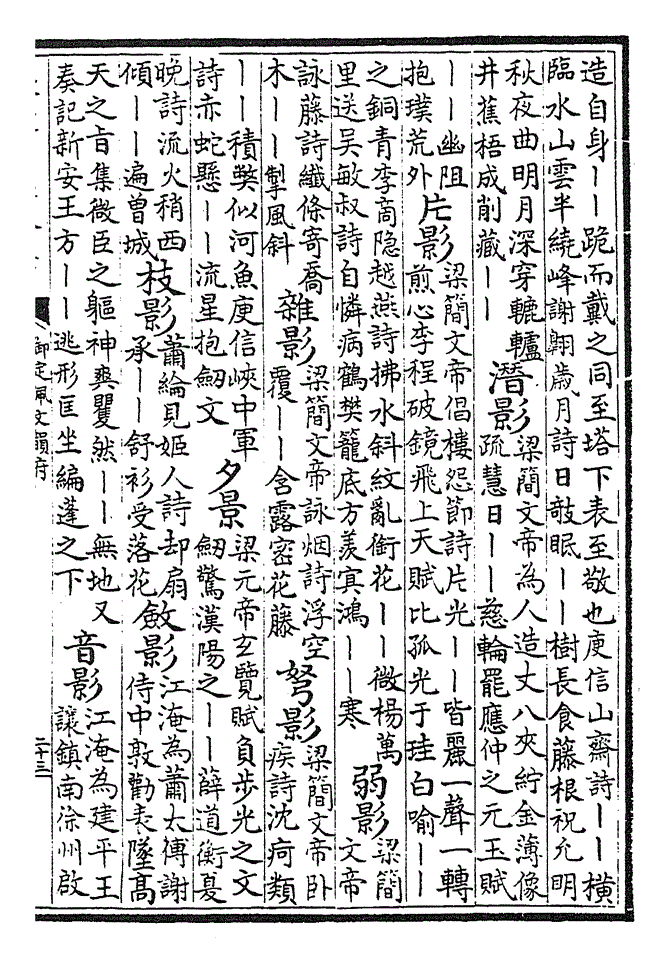 造自身丨丨跪而戴之同至塔下表至敬也庾信山齋詩丨丨橫
臨水山雲半繞峰謝翺歲月詩日敧眠丨丨樹長食藤根祝允明
秋夜曲明月深穿轆轤
井蕉梧成削藏丨丨
潛影
梁簡文帝為人造丈八夾紵金薄像
疏慧日丨丨慈輪罷應仲之元玉賦
丨丨幽阻
抱璞荒外
片影
梁簡文帝倡樓怨節詩片光丨丨皆麗一聲一轉
煎心李程破鏡飛上天賦比孤光于珪白喻丨丨
之銅青李商隐越燕詩拂水斜紋亂銜花丨丨微楊萬
里送吴敏叔詩自憐病鶴樊籠底方羨㝠鴻丨丨寒
弱影
梁簡
文帝
詠藤詩纖條寄喬
木丨丨掣風斜
雜影
梁簡文帝詠烟詩浮空
覆丨丨含露密花藤
弩影
梁簡文帝卧
疾詩沈疴類
丨丨積獘似河魚庾信峽中軍
詩亦蛇懸丨丨流星抱劒文
夕景
梁元帝玄覽賦負步光之文
劒驚漢陽之丨丨薛道衡憂
晚詩流火稍西
傾丨丨遍曾城
枝影
蕭綸見姬人詩却扇
承丨丨舒衫受落花
斂影
江淹為蕭太傅謝
侍中敦勸表墜高
天之旨集微臣之軀神爽瞿然丨丨無地又
奏記新安王方丨丨逃形匡坐編蓬之下
音影
江淹為建平王
讓鎮南徐州啟
御定佩文韻府
二十三